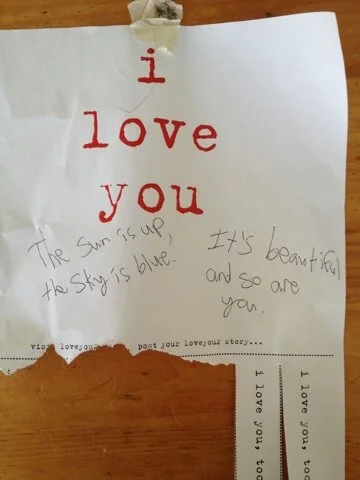 i
love
you
The sun is up,
the sky is blue.
It's beautiful
and so are
you.
loveyou2 post your loveyou2 story...
i love you, too
i love you, too